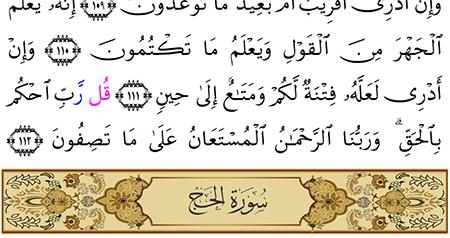 وَإِنْ أَدْرِىٓ أَقَرِيبٌ أَم بَعِيدٌ مَّا تُوعَدُونَ ﴿١٠٩﴾ إِنَّهُۥ يَعْلَمُ
ٱلْجَهْرَ مِنَ ٱلْقَوْلِ وَيَعْلَمُ مَا تَكْتُمُونَ ﴿١١٠﴾ وَإِنْ
أَدْرِى لَعَلَّهُۥ فِتْنَةٌ لَّكُمْ وَمَتَٰعٌ إِلَىٰ حِينٍ ﴿١١١﴾ قُل رَّبِّ ٱحْكُم
بِٱلْحَقِّ ۗ وَرَبُّنَا ٱلرَّحْمَٰنُ ٱلْمُسْتَعَانُ عَلَىٰ مَا تَصِفُونَ ﴿١١٢﴾
سُورَةُ الحَجِّ